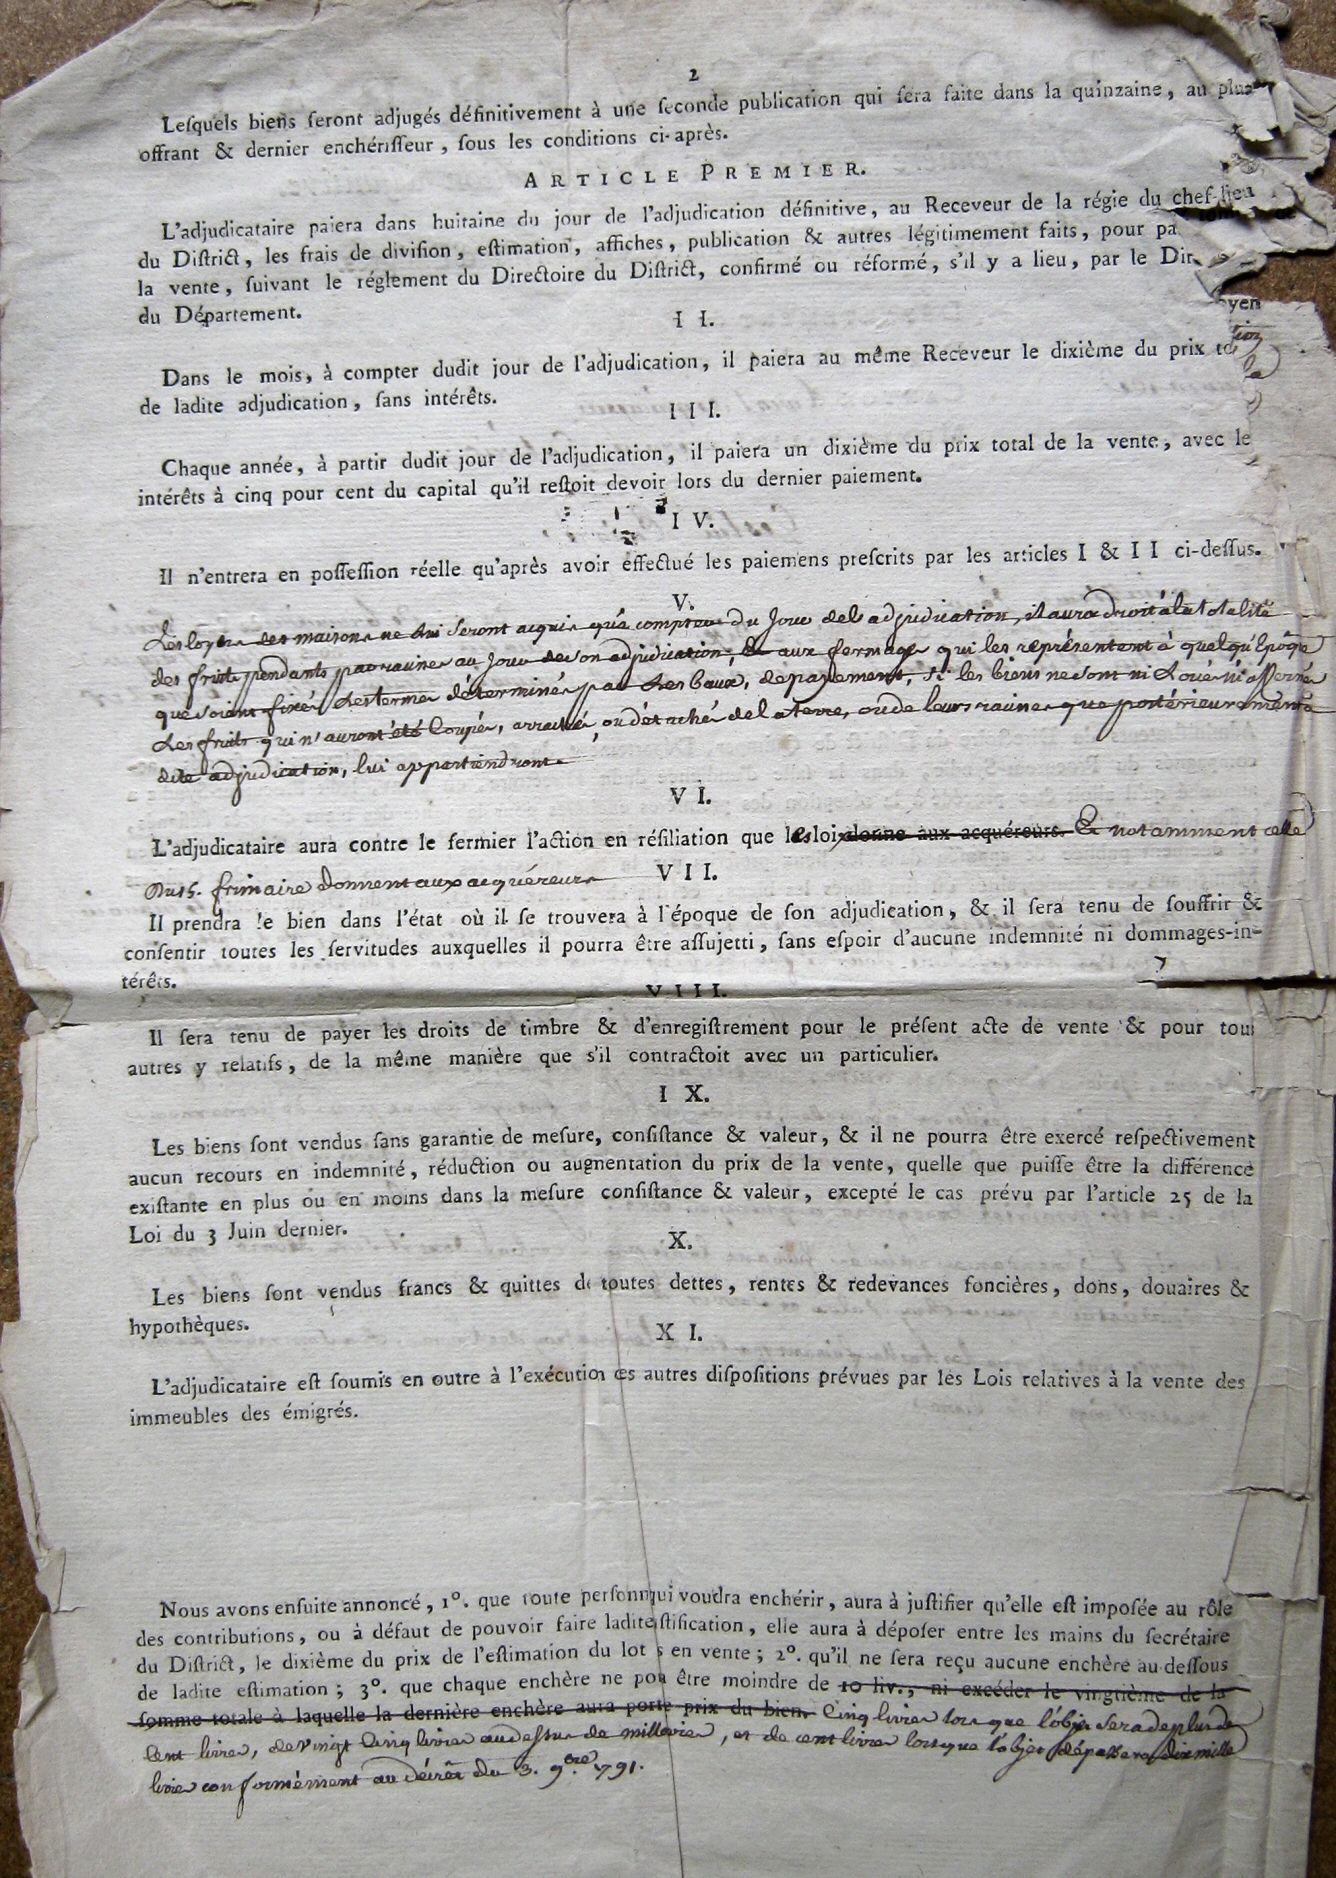 2
Lesquels biens seront adjugés définitivement à une seconde publication qui sera faite dans la quinzaine, au plus
offrant & dernier enchérisseur, sous les conditions ci-après.
ARTICLE PREMIER.
L'adjudicataire paiera dans huitaine du jour de l'adjudication définitive, au Receveur de la régie du chef-lieu
du District, les frais de division, estimation, affiches, publication & autres légitimement faits, pour pa
la vente, suivant le réglement du Directoire du District, confirmé ou réformé, s'il y a lieu, par le Dir
du Département.
II.
Dans le mois, à compter dudit jour de l'adjudication, il paiera au même Receveur le dixième du prix to
de ladite adjudication, sans intérêts.
III.
Chaque année, à partir dudit jour de l'adjudication, il paiera un dixième du prix total de la vente, avec le
intérêts à cinq pour cent du capital qu'il restoit devoir lors du dernier paiement.
IV.
Il n'entrera en possession réelle qu'après avoir effectué les paiemens prescrits par les articles I & II ci-dessus.
V.
Les loyers des maisons ne lui seront acquis qu'à compter du jour de l'adjudication, il aura droit à la totalité
des fruits pendants par racines au jour de son adjudication, & aux fermages qui les représentent à quelqu'Epoque
que soient fixés les termes déterminés par les baux, de payement, si les biens ne sont ni Loués ni affermés
les fruits qui n'auront été Coupés, arrachés, ou détachés de la terre, ou de leurs racines que postérieurement à
dite adjudication, lui appartiendront.
VI.
L'adjudicataire aura contre le fermier l'action en résiliation que les loix donne aux acquéreurs. Et notamment celle
Du 15. frimaire donnent aux acquéreurs
VII.
Il prendra le bien dans l'état où il se trouvera à l'époque de son adjudication, & il sera tenu de souffrir &
consentir toutes les servitudes auxquelles il pourra être assujetti, sans espoir d'aucune indemnité ni dommages-in-
térêts.
VIII.
Il sera tenu de payer les droits de timbre & d'enregistrement pour le présent acte de vente & pour tou
autres y relatifs, de la même manière que s'il contractoit avec un particulier.
IX.
Les biens sont vendus sans garantie de mesure, consistance & valeur, & il ne pourra être exercé respectivement
aucun recours en indemnité, réduction ou augnentation du prix de la vente, quelle que puisse être la différence
existante en plus ou en moins dans la mesure consistance & valeur, excepté le cas prévu par l'article 25 de la
Loi du 3 Juin dernier.
X.
Les biens sont vendus francs & quittes de toutes dettes, rentes & redevances foncières, dons, douaires &
hypothèques.
XI.
L'adjudicataire est soumis en outre à l'exécution des autres dispositions prévues par les Lois relatives à la vente des
immeubles des émigrés.
Nous avons ensuite annoncé, 1°. que toute personn qui voudra enchérir, aura à justifier qu'elle est imposée au rôle
des contributions, ou à défaut de pouvoir faire ladite stification, elle aura à déposer entre les mains du secrétaire
du District, le dixième du prix de l'estimation du lot s en vente; 2°. qu'il ne sera reçu aucune enchère au-dessous
de ladite estimation; 3°. que chaque enchère ne pou être moindre de 10 liv., ni excéder le vingtième de la
somme totale à laquelle la dernière enchère aura porté prix du bien. Cinq livres lors que l'objet sera de plus de
Cent livres, de vingt Cinq livres au dessus de mille livres, et de cent livres lorsque l'objet dépassera dix mille
livres conformément au décret du 3. 9bre 1791.